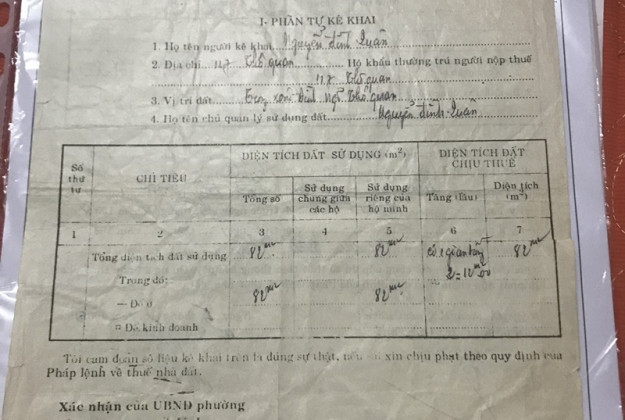 I- PHẦN TỰ KÊ KHAI
1. Họ tên người kê khai Nguyễn Đình Quân
2. Địa chỉ 117 Thổ quan Hộ khẩu thường trú người nộp thuế
117 Thổ quan
3. Vị trí đất Thổ quan
4. Họ tên chủ quản lý sử dụng đất Nguyễn Đình Quân
Số thứ tự
CHỈ TIÊU
DIỆN TÍCH ĐẤT SỬ DỤNG (m²)
DIỆN TÍCH ĐẤT CHỊU THUẾ
Tổng số
Sử dụng chung giữa các hộ
Sử dụng riêng của hộ mình
Tầng (lầu)
Diện tích (m²)
1 2 3 4 5 6 7
Tổng diện tích đất sử dụng 82 m² 82 m² 82 m²
Trong đó:
— Đất ở 82 m² 82 m²
¤ Đất kinh doanh
Tôi cam đoan số liệu kê khai trên là đúng sự thật, nếu sai xin chịu phạt theo quy định của
Pháp lệnh về thuế nhà đất.
Xác nhận của UBND phường